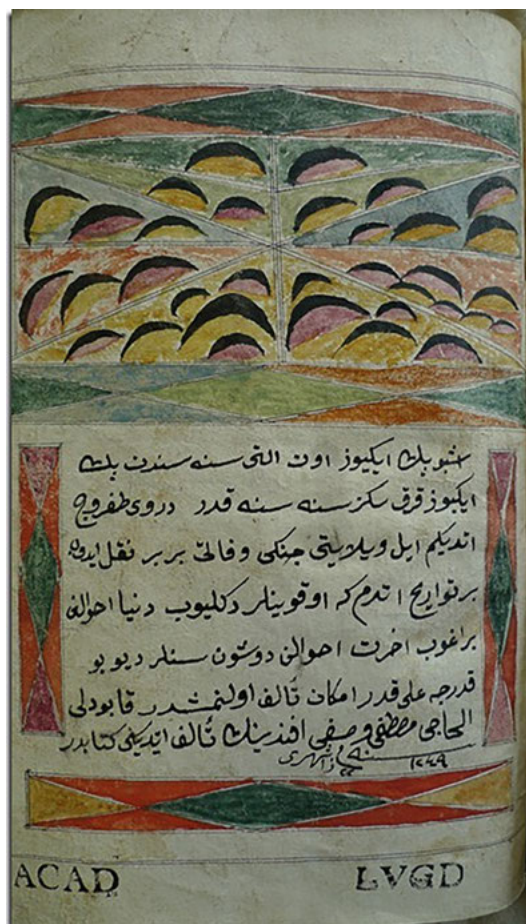 اشبو بيك ايكيوز اون التى سنه سندن بيك
ايكيوز قرق سكز سنه سنه قدر دروى ظفر وج
اتديكم ايل ويلايتى جنكى وفاتى بربر نقل ايدوب
بر تواريخ اتدم كه اوقوينلر دكليوب دنيا احوالن
براغوب اخرت احوالن دوشون سنلر ديو بو
قدرجه على قدر امكان تألف اولنمشدر قابودلى
الحاجى مصطفى وصفى افندينك تألف ايديكى كتابدر
سنه ١٢٤٩
ACAD LVGD